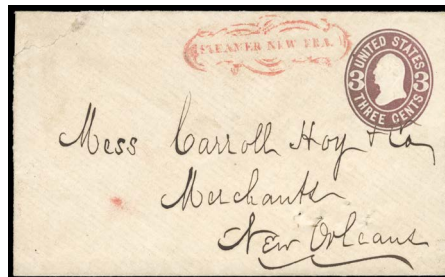 STEAMER NEW ERA.
UNITED STATES
3 3
THREE CENTS
Mess Carroll Hoy & Co
Merchants
New Orleans